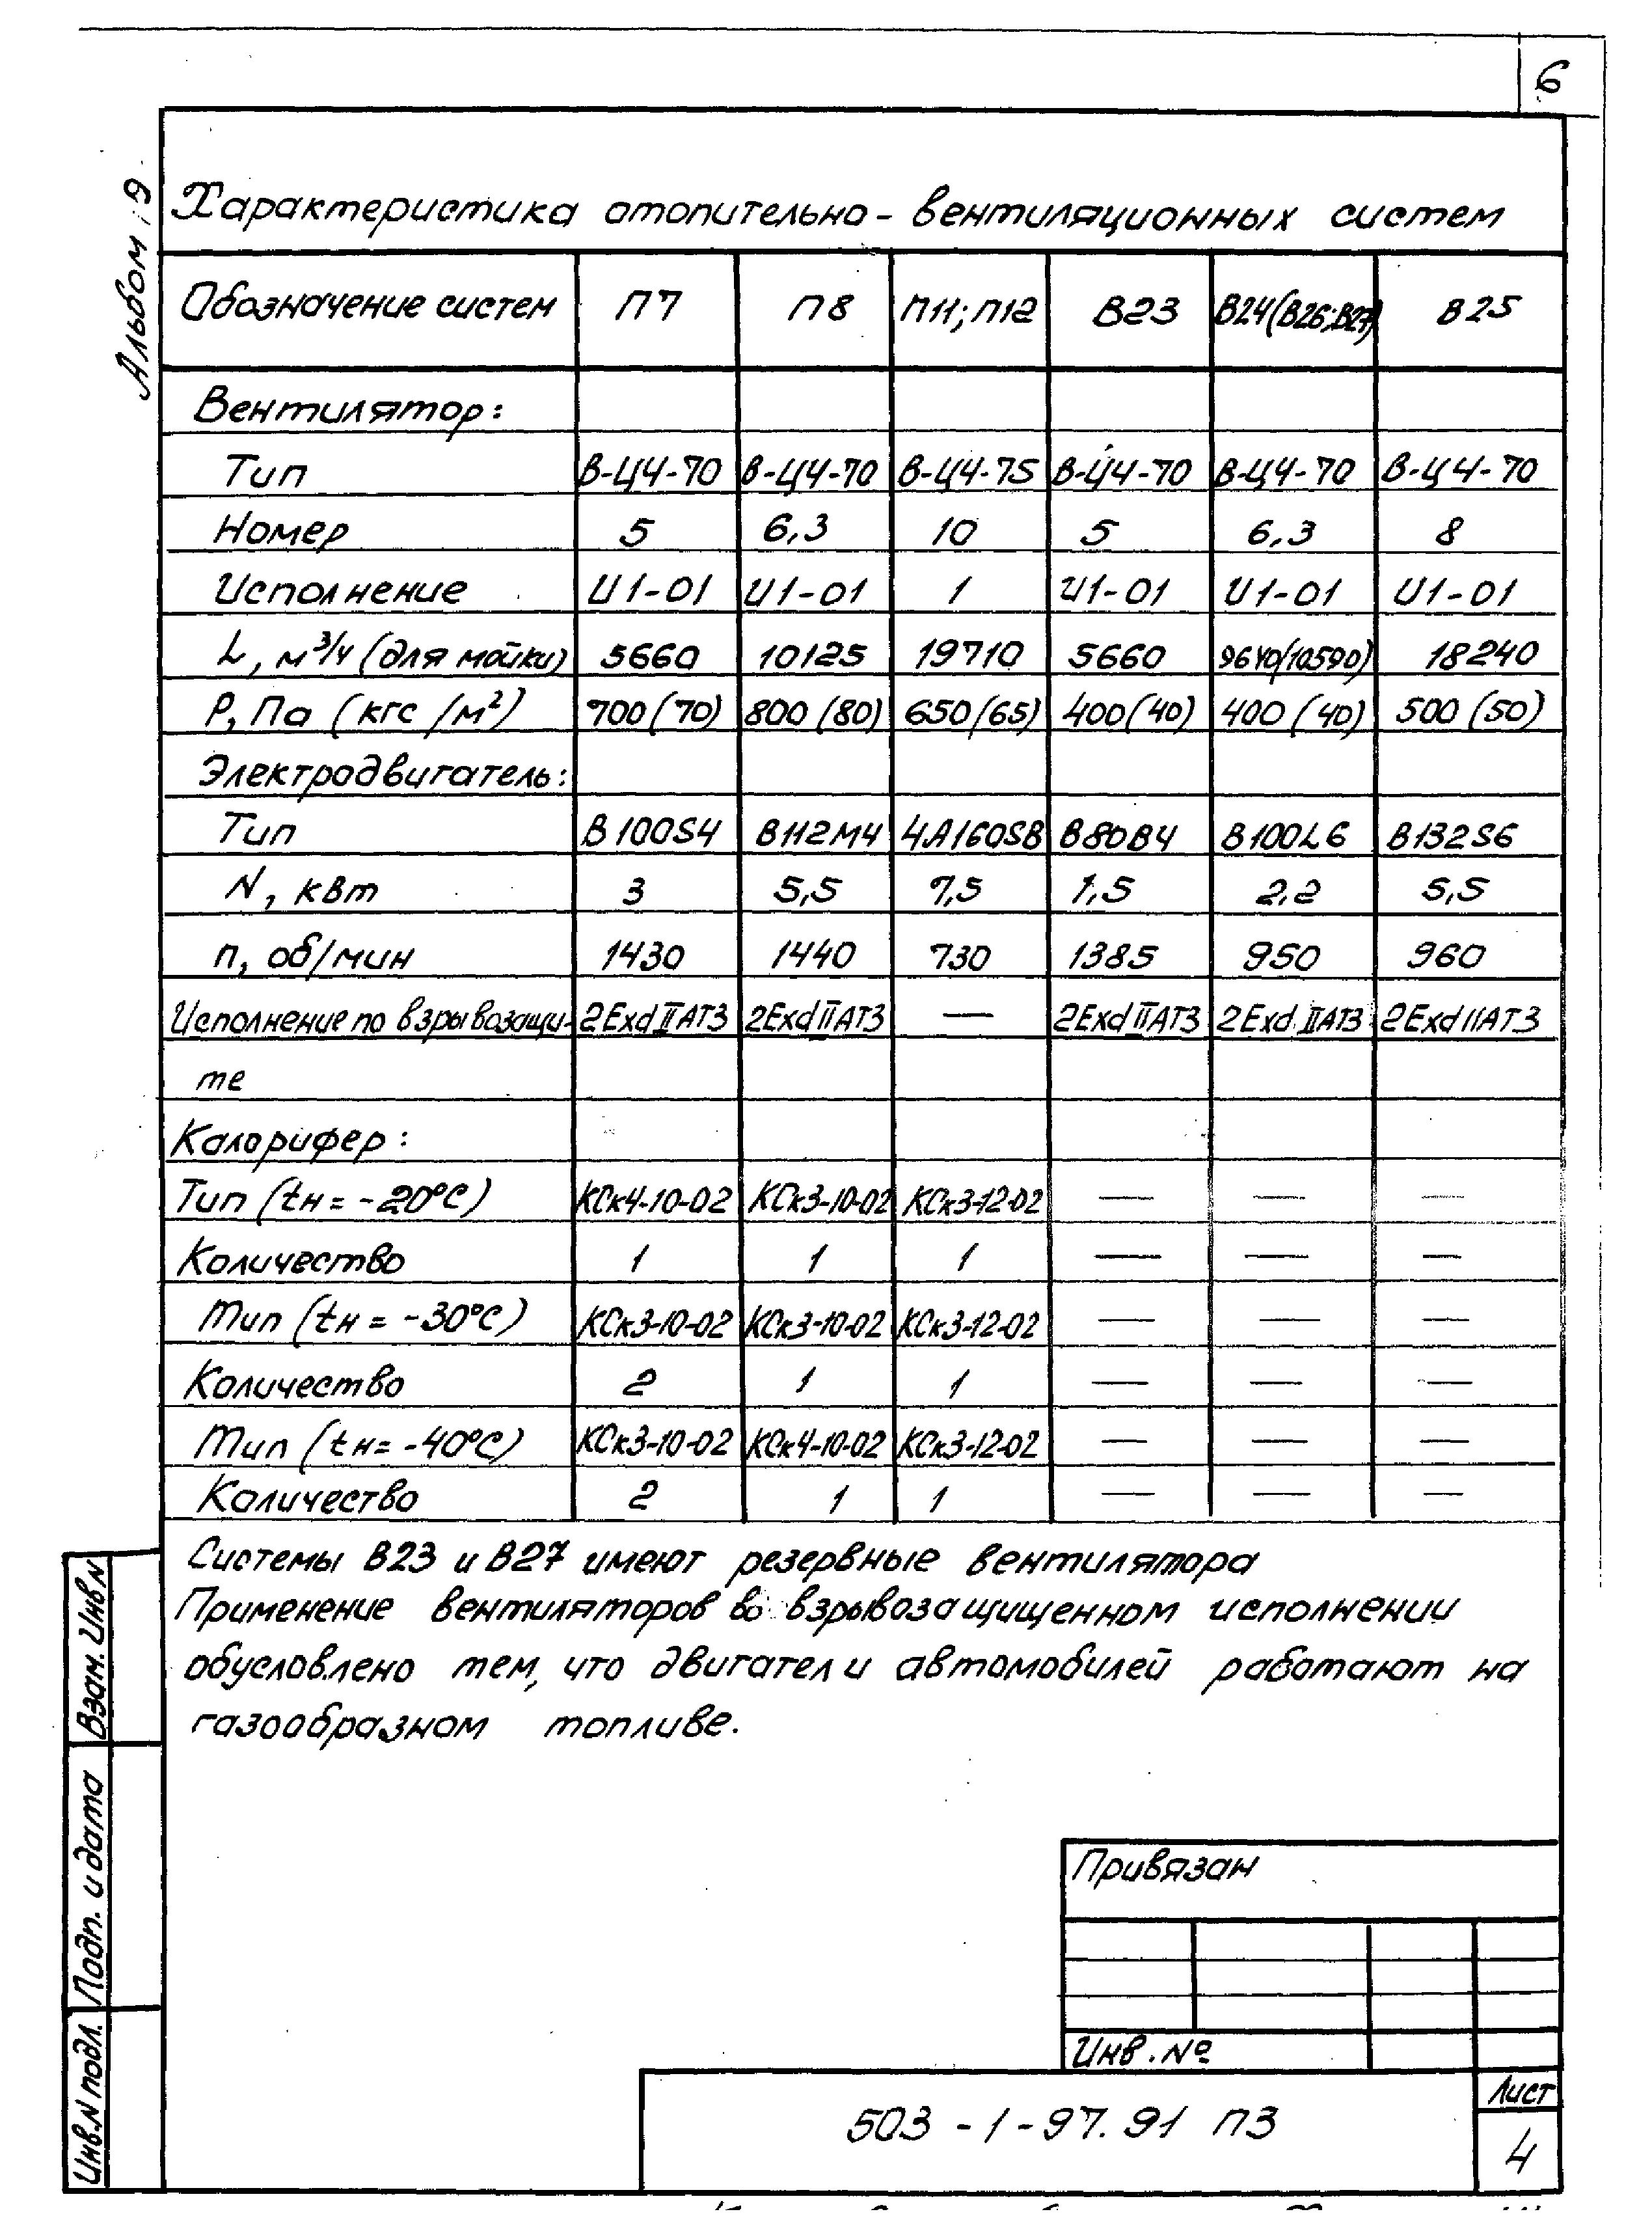 6
Альбом 9
Характеристика отопительно-вентиляционных систем
Обозначение систем П7 П8 П11; П12 В23 В24(В26;В27) В25
Вентилятор:
Тип В-Ц4-70 В-Ц4-70 В-Ц4-75 В-Ц4-70 В-Ц4-70 В-Ц4-70
Номер 5 6,3 10 5 6,3 8
Исполнение И1-01 И1-01 1 И1-01 И1-01 И1-01
L, м³/ч (для мойки) 5660 10125 19710 5660 9640(10590) 18240
Р, Па (кгс/м²) 700(70) 800(80) 650(65) 400(40) 400(40) 500(50)
Электродвигатель:
Тип В100S4 В112М4 4А160S8 В80В4 В100L6 В132S6
N, кВт 3 5,5 7,5 1,5 2,2 5,5
n, об/мин 1430 1440 730 1385 950 960
Исполнение по взрывозащи- 2ExdIIAT3 2ExdIIAT3 — 2ExdIIAT3 2ExdIIAT3 2ExdIIAT3
те
Калорифер:
Тип (tн = -20°С) КСк4-10-02 КСк3-10-02 КСк3-12-02 — — —
Количество 1 1 1 — — —
Тип (tн = -30°С) КСк3-10-02 КСк3-10-02 КСк3-12-02 — — —
Количество 2 1 1 — — —
Тип (tн = -40°С) КСк3-10-02 КСк4-10-02 КСк3-12-02 — — —
Количество 2 1 1 — — —
Системы В23 и В27 имеют резервные вентилятора
Применение вентиляторов во взрывозащищенном исполнении
обусловлено тем, что двигатели автомобилей работают на
газообразном топливе.
Взам. Инв N
Подп. и дата
Инв.N подл.
Привязан
Инв. №
503-1-97.91 ПЗ
Лист
4